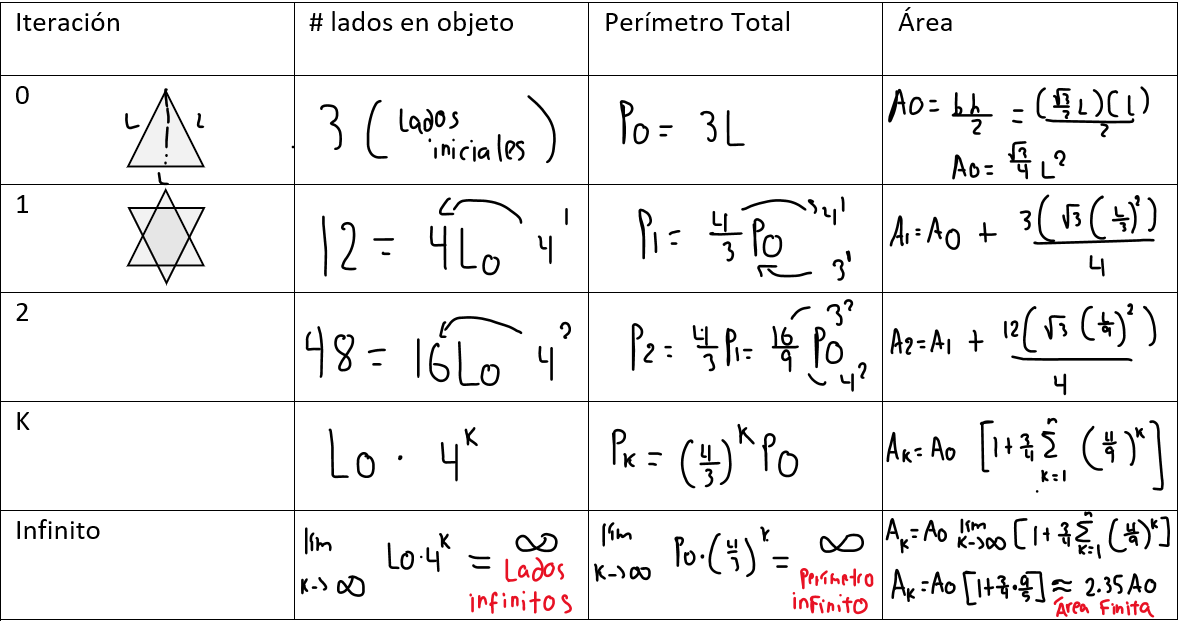 Iteración # lados en objeto Perímetro Total Área
0
L L
L
3 ( lados iniciales )
P0 = 3L
A0 = bh/2 = (√3/2 L)(L)/2
A0 = √3/4 L²
1
12 = 4L0 4^1
P1 = 4/3 P0 4^1 3^1
A1 = A0 + 3(√3(L/3)²)/4
2
48 = 16L0 4^2
P2 = 4/3 P1 = 16/9 P0 3^2 4^2
A2 = A1 + 12(√3(L/9)²)/4
K
L0 · 4^K
PK = (4/3)^K P0
AK = A0 [1 + 3/4 Σ_{K=1}^{n} (4/9)^K]
Infinito
lím K->∞ L0·4^K = ∞
Lados
infinitos
lím K->∞ P0·(4/3)^K = ∞
Perímetro
infinito
AK = A0 lím K->∞ [1 + 3/4 Σ_{K=1}^{n} (4/9)^K]
AK = A0 [1 + 3/4 · 9/5] ≈ 2.35 A0
Área Finita